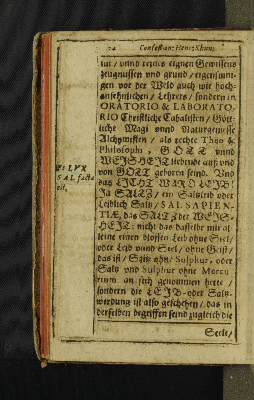 24 Confession: Henr: Khunr:
tur / vnnd reines eignen Gewissens
zeugnussen vnd grund / eigensinni-
gen vor der Welt auch wie hoch-
ansehnlichen / Lehrers / sondern in
ORATORIO & LABORATO-
RIO Christliche Cabalisten / Gött-
liche Magi vnnd Naturgemesse
Alchymisten / als rechte Theo &
Philosophi, GOTT vnnd
WEISHEIT liebende auß vnd
von GOTT geboren seind. Vnd
das LICHT WARD LEIB!
Ja SALTZ / ein Saltzend oder
Leiblich Saltz / SAL SAPIEN-
TIÆ, das SALTZ der WEIS-
HEIT: nicht das dasselbe mir al-
leine einen blossen Leib ohne Seel /
oder Leib vnnd Seel / ohne Geist /
das ist / Saltz ohn / Sulphur, oder
Saltz vnd Sulphur ohne Mercu
rium an sich genommen hette /
sondern die LEIB-oder Saltz-
werdung ist also geschehen / das in
derselben begriffen seind zugleich die
Seele /
Et LVX
SAL facta
est,